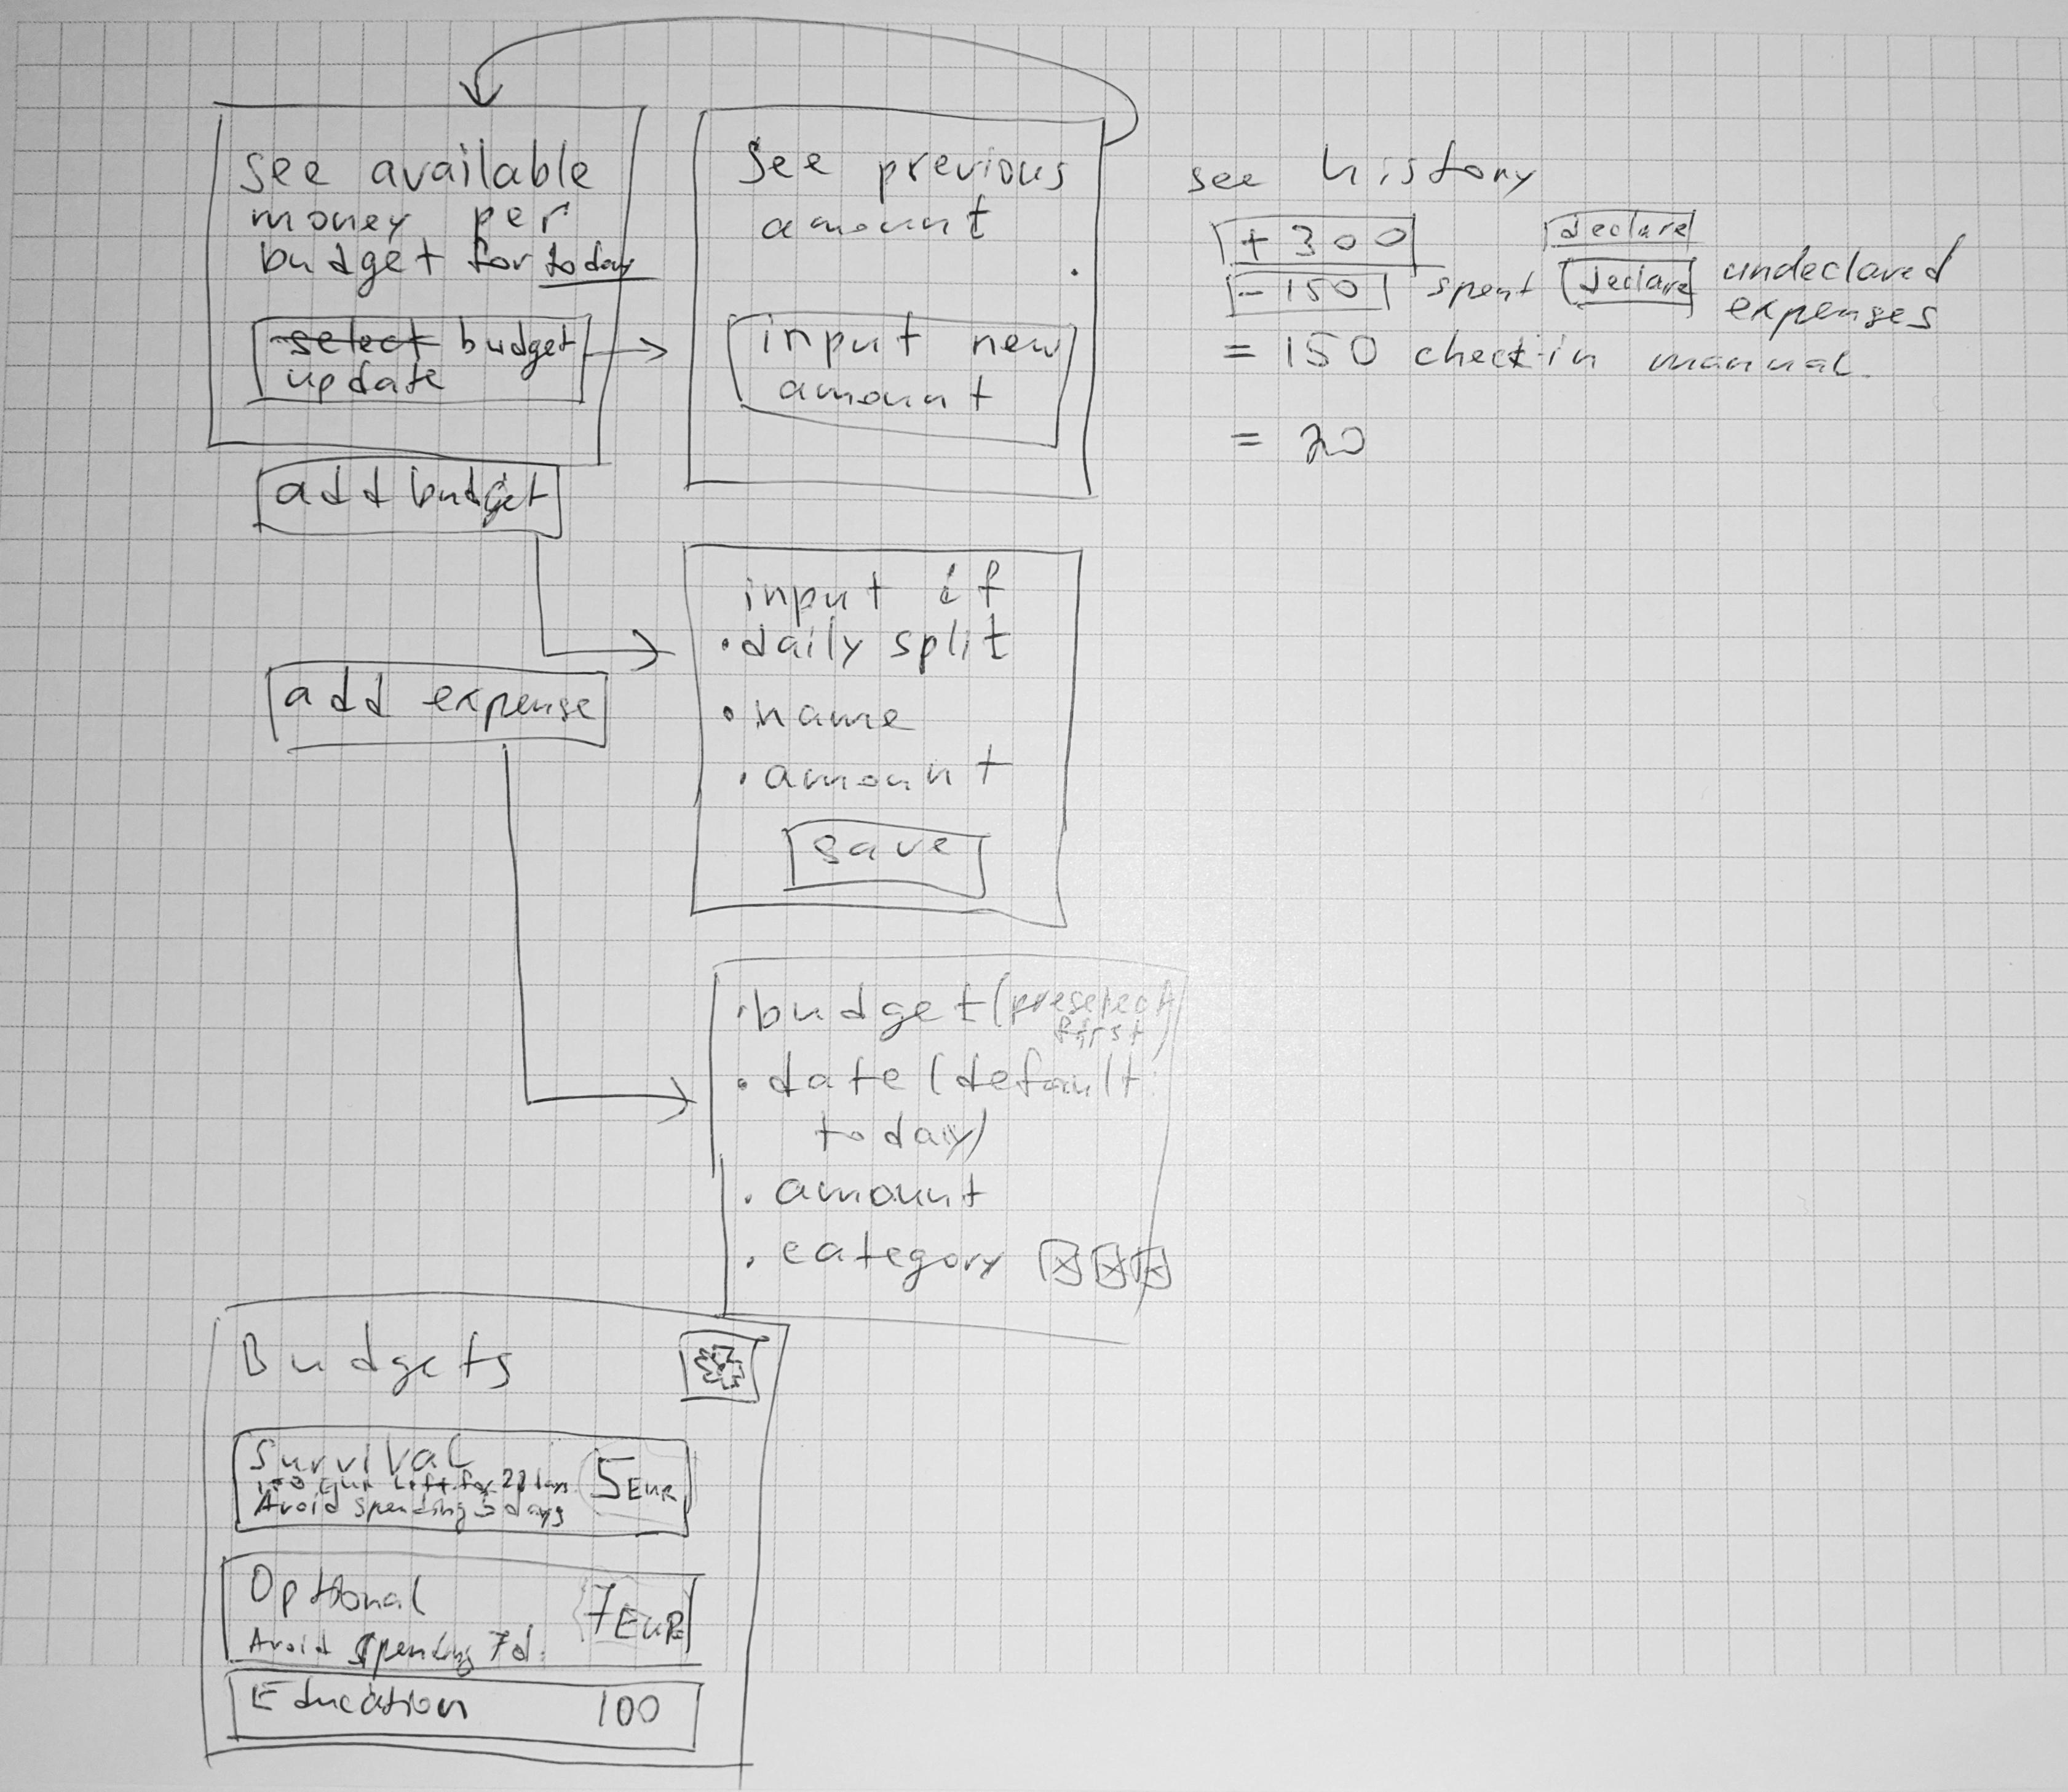 see available
money per
budget for today
select budget
update
add budget
add expense
See previous
amount
input new
amount
see history
+300
declare
-150 spent declare undeclared
expenses
= 150 check-in manual
= 20
input if
• daily split
• name
• amount
save
• budget (preselect
first)
• date (default
today)
• amount
• category
Budgets
Survival
left for 22 days
Avoid spending 3 days
5 EUR
Optional
Avoid spending 7d.
7 EUR
Education 100